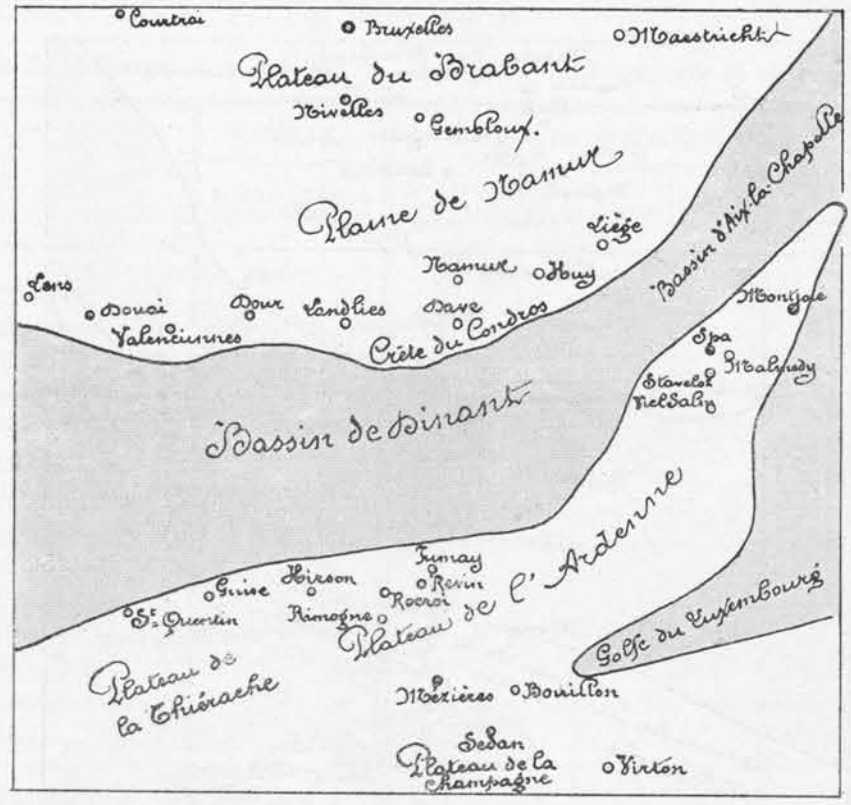 Courtrai
Bruxelles
Maestricht
Plateau du Brabant
Nivelles
Gembloux.
Plaine de Namur
Bassin d'Aix-la-Chapelle
Liège
Namur
Huy
Lens
Douai
Dour
Landlies
Dave
Valenciunnes
Crête du Condros
Montjoie
Spa
Malmedy
Stavelot
VielSalm
Bassin de Dinant
Plateau de l'Ardenne
Fumay
Revin
Hirson
Guise
Rocroi
St Quentin
Rimogne
Golfe du Luxembourg
Plateau de
la Thiérache
Mézières
Bouillon
Sedan
Plateau de la
Champagne
Virton